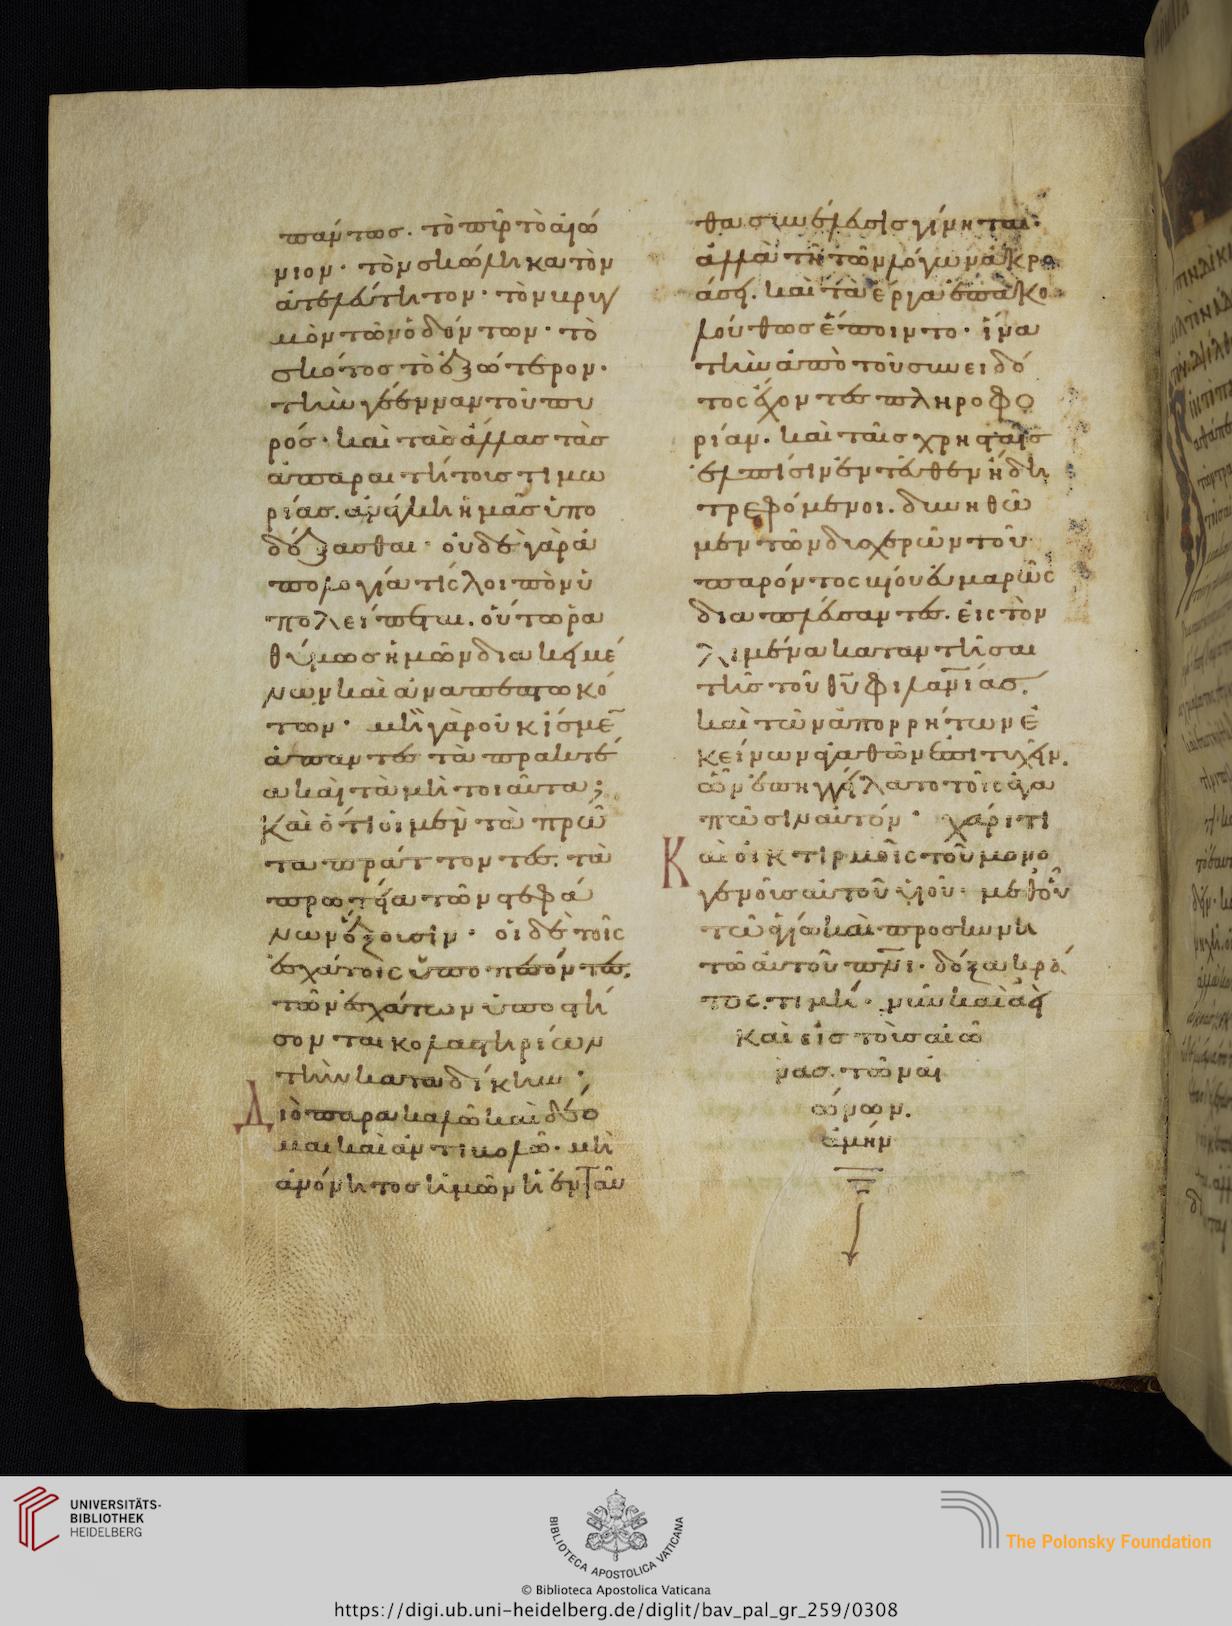 πάντως. τὸ πῦρ τὸ αἰώ
νιον· τὸν σκώληκα τὸν
ἀτελεύτητον· τὸν βρυγ
μὸν τῶν ὀδόντων· τὸ
σκότος τὸ ἐξώτερον·
τὴν γέενναν τοῦ πυ
ρός· καὶ τὰς ἄλλας τὰς
ἀπαραιτήτους τιμω
ρίας. ἀνάγκη ἡμᾶς ὑπο
δέξασθαι· οὐδὲ γὰρ ἀ
πολογία τίς λοιπὸν ὑ
πολείπεται. οὕτω ῥα
θύμως ἡμῶν διακειμέ
νων καὶ ἀναπεπτωκό
των· μὴ γὰρ οὐκ ἴσμεν
ἅπαντες τὰ πρακτέ
α καὶ τὰ μὴ τοιαῦτα;
καὶ ὅτι οἱ μὲν τὰ πρῶ
τα πράττοντες. τὰ
πρωτεῖα τῶν στεφά
νων ἕξουσιν· οἱ δὲ τοῖς
ἐσχάτοις ὑποπεσόντες,
τῶν ἐσχάτων ὑποστή
σονται κολαστηρίων
τὴν καταδίκην;
Διὸ παρακαλῶ καὶ δέο
μαι καὶ ἀντιβολῶ· μὴ
ἀνόνητος ἡμῶν ἡ ἐνταῦ
θα συνέλευσις γίνηται·
ἀλλὰ τῇ τῶν λόγων ἀκρο
άσει. καὶ τὰ ἔργα ἐπακο
λούθως ἕποιντο· ἵνα
τὴν ἀπὸ τοῦ συνειδό
τος ἔχοντες πληροφο
ρίαν. καὶ ταῖς χρησταῖς
ἐλπίσιν ἐντεῦθεν ἤδη
τρεφόμενοι. δυνηθῶ
μεν τῶν δυσχερῶν τοῦ
παρόντος βίου εὐμαρῶς
διαπλεύσαντες. εἰς τὸν
λιμένα καταντῆσαι
τῆς τοῦ θυ φιλανίας.
καὶ τῶν ἀπορρήτων ἐ
κείνων ἀγαθῶν ἐπιτυχεῖν.
ὧν ἐπηγγείλατο τοῖς ἀγα
πῶσιν αὐτόν· χάριτι
Καὶ οἰκτιρμοῖς τοῦ μονο
γενοῦς αὐτοῦ υἱοῦ· μεθ' οὗ
τῷ ἁγίῳ καὶ προσκυνη
τῷ αὐτοῦ πνι· δόξα κρά
τος. τιμή· νῦν καὶ ἀεὶ
καὶ εἰς τοὺς αἰῶ
νας. τῶν αἰ
ώνων.
ἀμήν
UNIVERSITÄTS-
BIBLIOTHEK
HEIDELBERG
BIBLIOTECA APOSTOLICA VATICANA
© Biblioteca Apostolica Vaticana
The Polonsky Foundation
https://digi.ub.uni-heidelberg.de/diglit/bav_pal_gr_259/0308